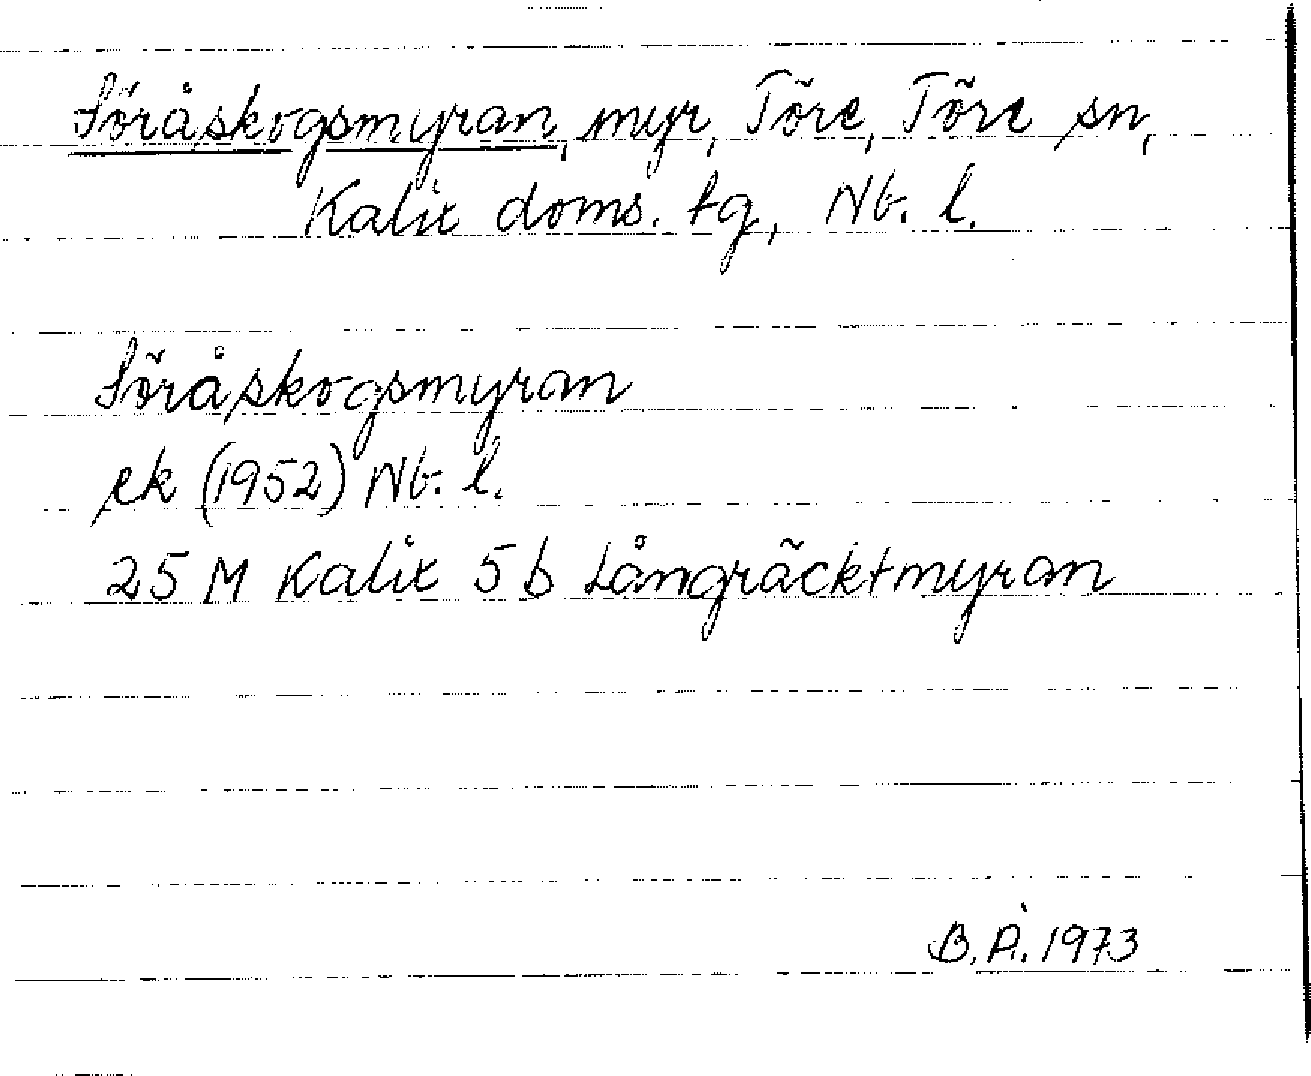 Söråskogsmyran, myr, Töre, Töre sn,
Kalix doms. tg, Nb. l.
Söråskogsmyran
ek (1952) Nb. l.
25 M Kalix 5 b Långräcktmyran
B.Å. 1973